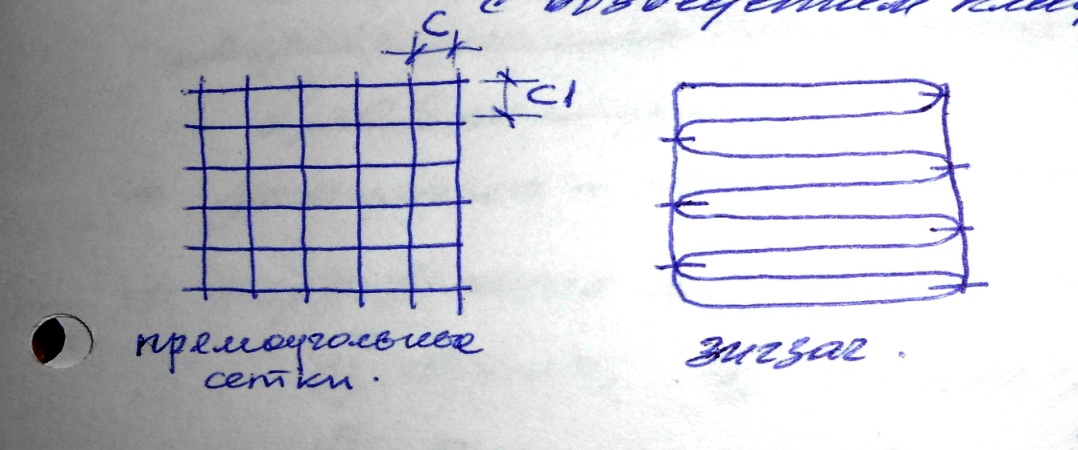 с
C
C1
прямоугольные
сетки.
зигзаг.